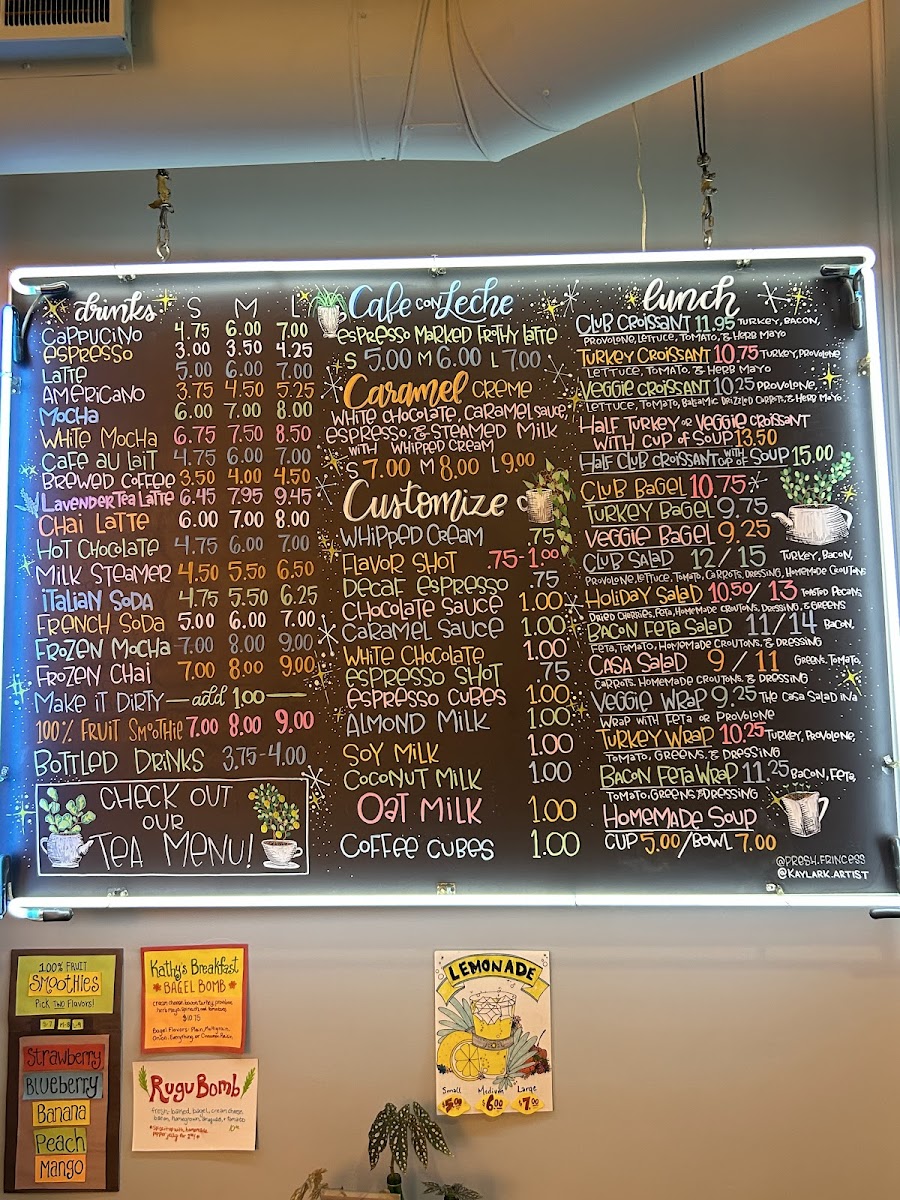 drinks S M L
CAPPUCINO 4.75 6.00 7.00
ESPRESSO 3.00 3.50 4.25
LATTE 5.00 6.00 7.00
AMERICANO 3.75 4.50 5.25
MOCHA 6.00 7.00 8.00
WHITE MOCHA 6.75 7.50 8.50
CAFE AU LAIT 4.75 6.00 7.00
BREWED COFFEE 3.50 4.00 4.50
LAVENDER TEA LATTE 6.45 7.95 9.45
CHAI LATTE 6.00 7.00 8.00
HOT CHOCOLATE 4.75 6.00 7.00
MILK STEAMER 4.50 5.50 6.50
ITALIAN SODA 4.75 5.50 6.25
FRENCH SODA 5.00 6.00 7.00
FROZEN MOCHA 7.00 8.00 9.00
FROZEN CHAI 7.00 8.00 9.00
MAKE IT DIRTY — add 1.00 —
100% FRUIT SMOOTHIE 7.00 8.00 9.00
BOTTLED DRINKS 3.75-4.00
CHECK OUT
OUR
TEA MENU!
Cafe CON Leche
ESPRESSO MARKED FROTHY LATTE
S 5.00 M 6.00 L 7.00
Caramel CREME
WHITE CHOCOLATE, CARAMEL SAUCE,
ESPRESSO, & STEAMED MILK
WITH WHIPPED CREAM
S 7.00 M 8.00 L 9.00
Customize
WHIPPED CREAM .75
FLAVOR SHOT .75-1.00
DECAF ESPRESSO .75
CHOCOLATE SAUCE 1.00
CARAMEL SAUCE 1.00
WHITE CHOCOLATE 1.00
ESPRESSO SHOT .75
ESPRESSO CUBES 1.00
ALMOND MILK 1.00
SOY MILK 1.00
COCONUT MILK 1.00
OAT MILK 1.00
COFFEE CUBES 1.00
lunch
CLUB CROISSANT 11.95 TURKEY, BACON,
PROVOLONE, LETTUCE, TOMATO, & HERB MAYO
TURKEY CROISSANT 10.75 TURKEY, PROVOLONE,
LETTUCE, TOMATO, & HERB MAYO
VEGGIE CROISSANT 10.25 PROVOLONE,
LETTUCE, TOMATO, BALSAMIC DRIZZLED CARROTS, & HERB MAYO
HALF TURKEY OR VEGGIE CROISSANT
WITH CUP OF SOUP 13.50
HALF CLUB CROISSANT WITH CUP OF SOUP 15.00
CLUB BAGEL 10.75
TURKEY BAGEL 9.75
VEGGIE BAGEL 9.25
CLUB SALAD 12/15 TURKEY, BACON,
PROVOLONE, LETTUCE, TOMATO, CARROTS, DRESSING, HOMEMADE CROUTONS
HOLIDAY SALAD 10.50/13 TOASTED PECANS,
DRIED CHERRIES, FETA, HOMEMADE CROUTONS, DRESSING, & GREENS
BACON FETA SALAD 11/14 BACON,
FETA, TOMATO, HOMEMADE CROUTONS, & DRESSING
CASA SALAD 9/11 GREENS, TOMATO,
CARROTS, HOMEMADE CROUTONS, & DRESSING
VEGGIE WRAP 9.25 THE CASA SALAD IN A
WRAP WITH FETA OR PROVOLONE
TURKEY WRAP 10.25 TURKEY, PROVOLONE,
TOMATO, GREENS, & DRESSING
BACON FETA WRAP 11.25 BACON, FETA,
TOMATO, GREENS, & DRESSING
HOMEMADE SOUP
CUP 5.00/BOWL 7.00
@PRESH.FRINCESS
@KAYLARK.ARTIST
100% FRUIT
SMOOTHIES
PICK TWO FLAVORS!
STRAWBERRY
BLUEBERRY
BANANA
PEACH
MANGO
Kathy's Breakfast
BAGEL BOMB
$10.75
Rugu Bomb
LEMONADE
Small Medium Large
$5.00 $6.00 $7.00